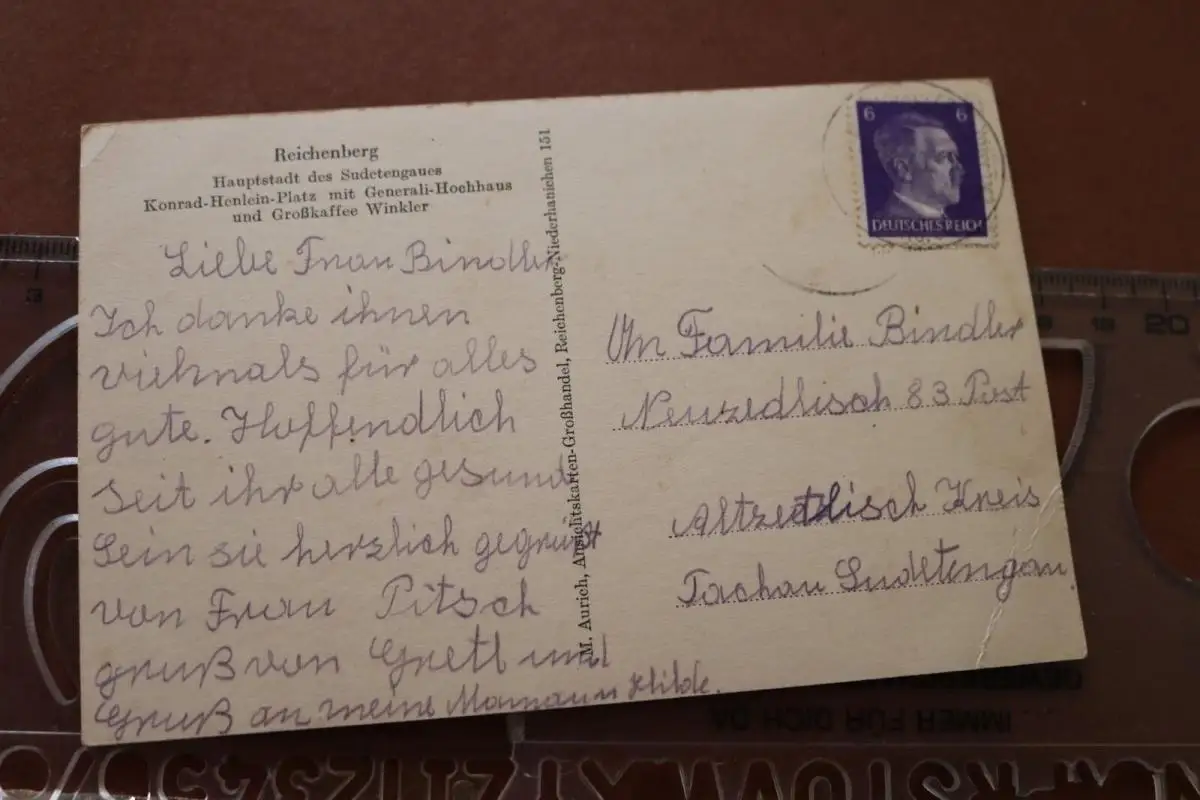 Reichenberg
Hauptstadt des Sudetengaues
Konrad-Henlein-Platz mit Generali-Hochhaus
und Großkaffee Winkler
Liebe Frau Bindler
Ich danke ihnen
vielmals für alles
gute. Hoffendlich
seit ihr alle gesund
Sein sie herzlich gegrüßt
von Frau Pitsch
gruß von Gretl und
Gruß an meine Mama u Hilde.
M. Aurich, Ansichtskarten-Großhandel, Reichenberg-Niederhanichen 151
6 6
DEUTSCHES REICH
An Familie Bindler
Neuzedlisch 83 Post
Altzedlisch Kreis
Tachau Sudetengau
3
18
20
IMMER FÜR DICH DA